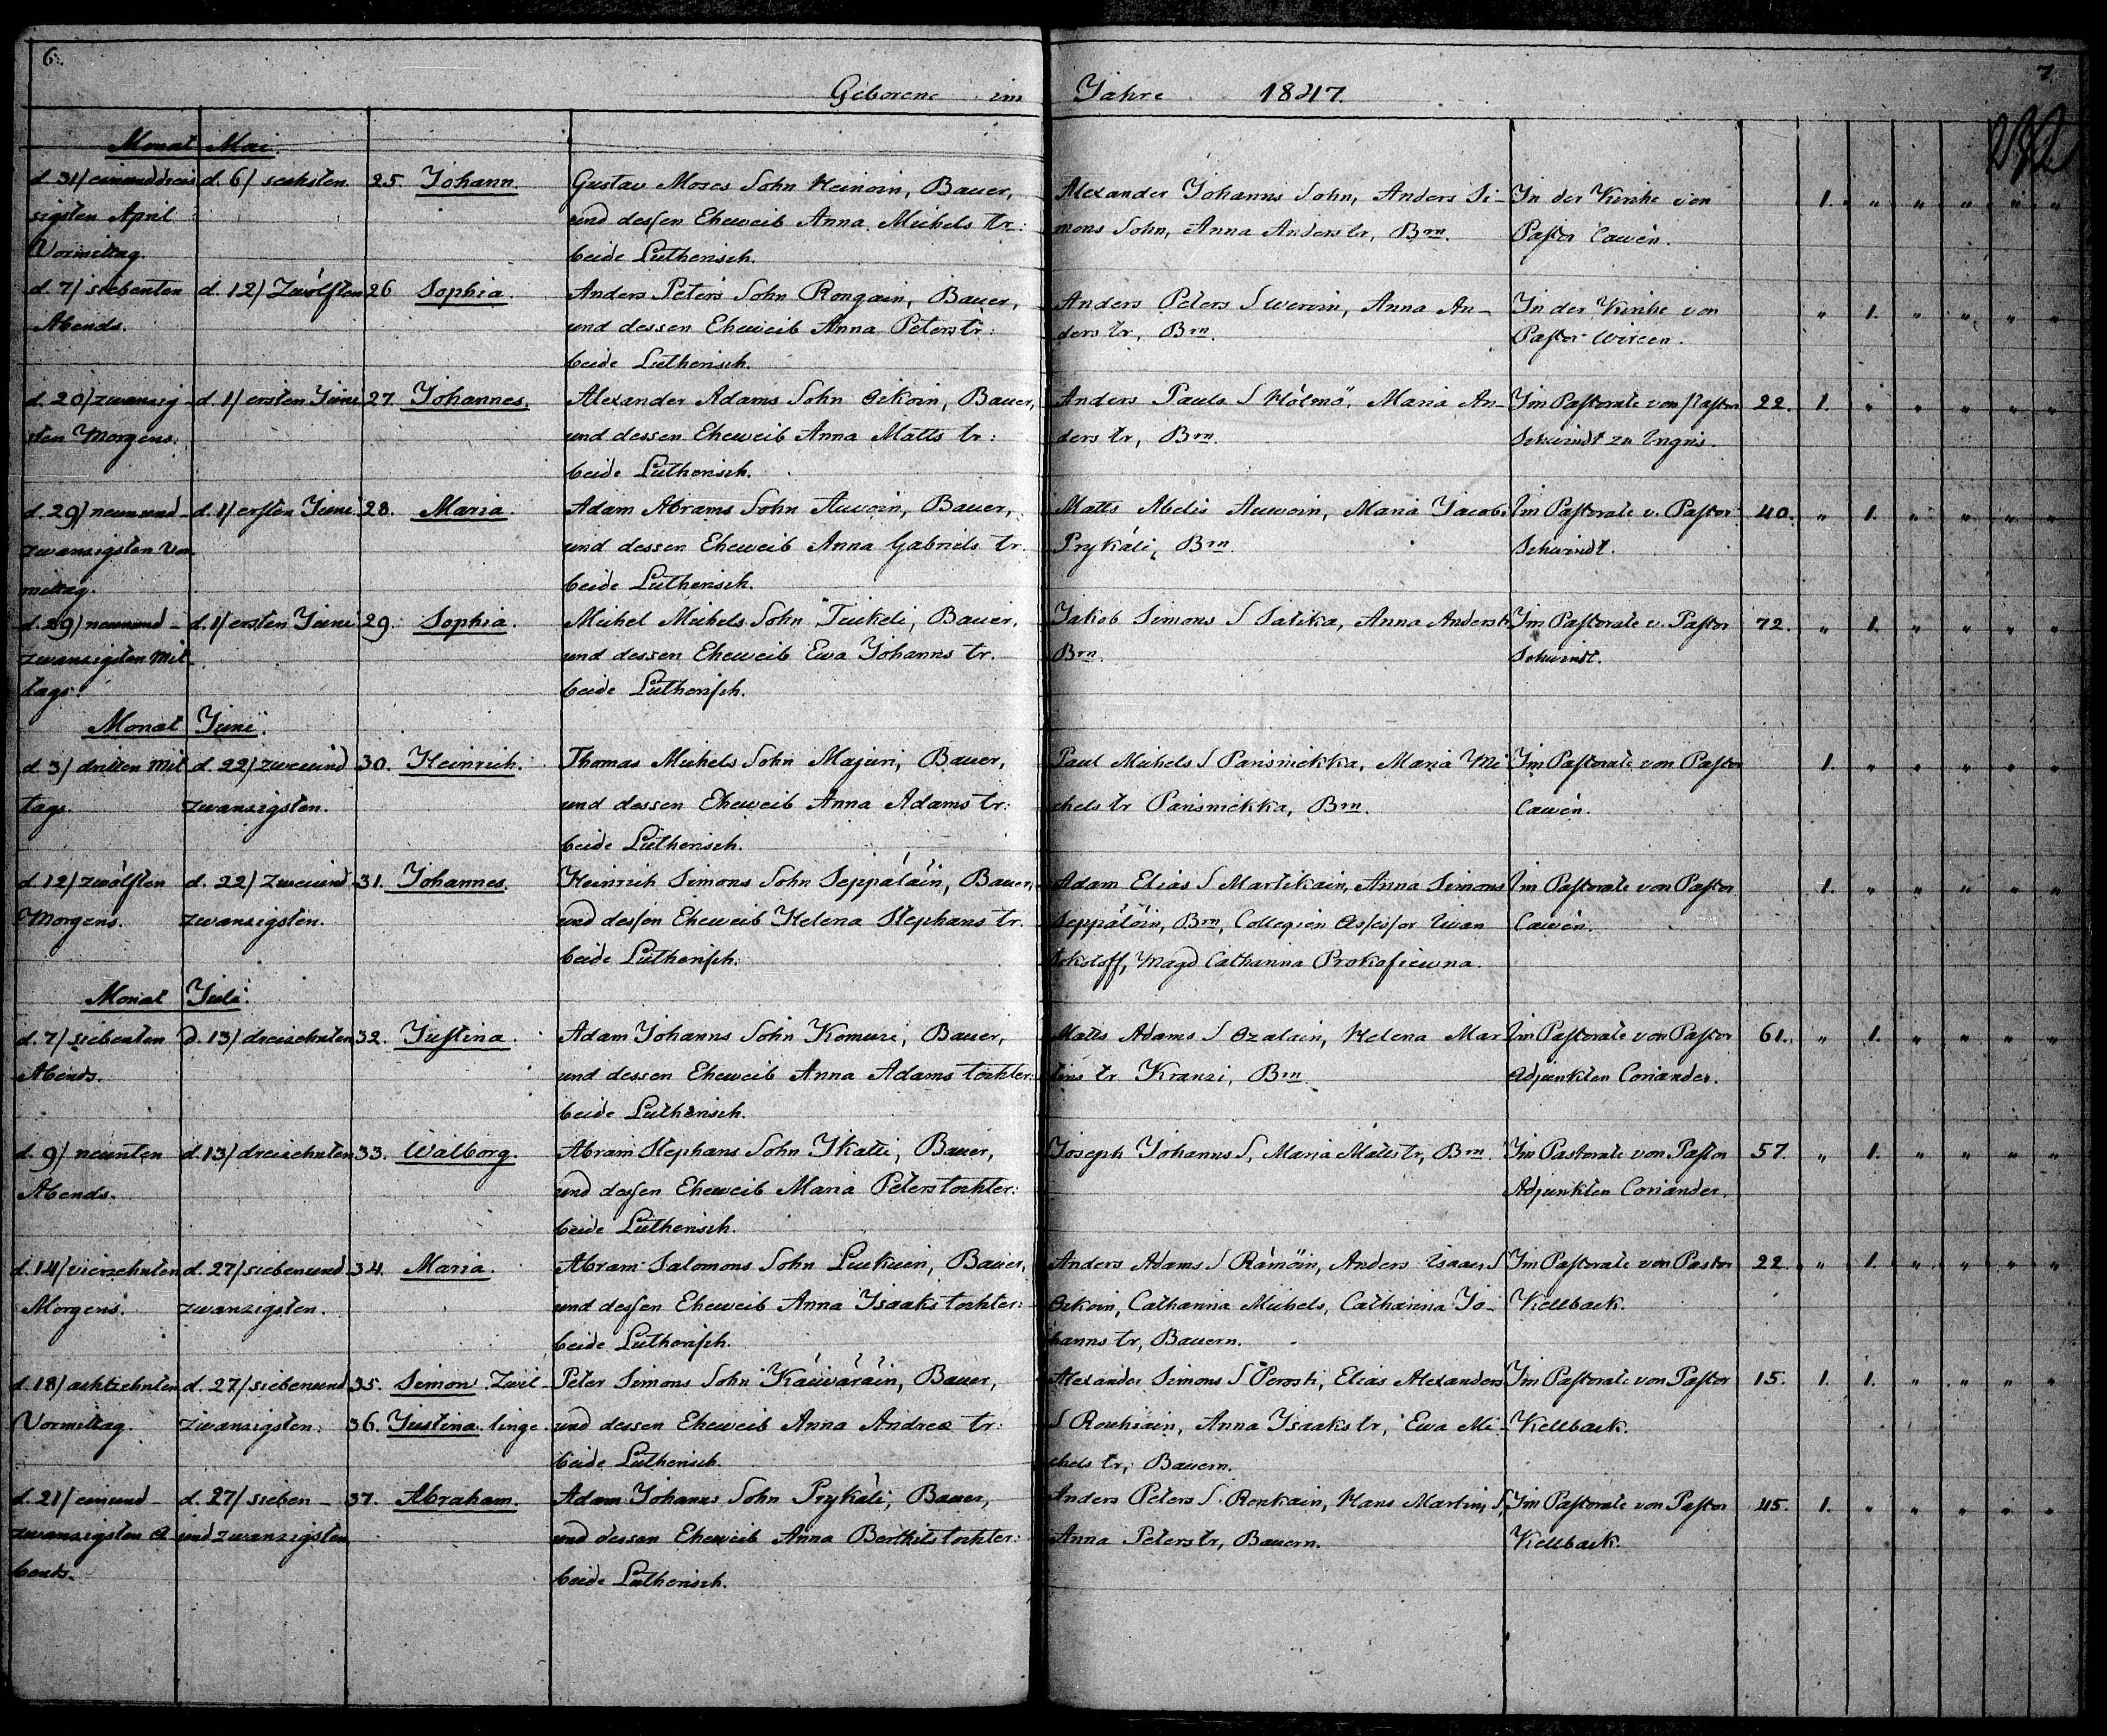 6.
7.
Geborene im Jahre 1847.
Monat Mai.
d. 31/ einunddreis d. 6/ sechsten. 25. Johann. Gustav Moses Sohn Heinoin, Bauer, Alexander Johanns Sohn, Anders Si- In der Kirche von 1. " " " " "
sigsten April und dessen Eheweib Anna Michels tr: mons Sohn, Anna Anders tr, Brn. Pastor Cawén.
Vormittag. beide Lutherisch.
d. 7/ siebenten d. 12/ Zwölften 26 Sophia. Anders Peters Sohn Rongain, Bauer, Anders Peters S Werwin, Anna An- In der Kirche von " 1. " " " "
Abends. und dessen Eheweib Anna Peters tr: ders tr, Brn. Pastor Wirèen.
beide Lutherisch.
d. 20/ zwanzig- d. 1/ ersten Juni 27. Johannes. Alexander Adams Sohn Oikoin, Bauer, Anders Pauls S Hölmö, Maria An- Im Pastorate von Pastor 22. 1. " " " " "
sten Morgens. und dessen Eheweib Anna Matts tr: ders tr, Brn. Schwindt zu Ingris.
beide Lutherisch.
d. 29/ neunund- d. 1/ ersten Juni 28. Maria. Adam Abrams Sohn Auwoin, Bauer, Matts Abels Auwoin, Maria Jacobs Im Pastorate v. Pastor 40. " 1. " " " "
zwanzigsten Vor und dessen Eheweib Anna Gabriels tr. Prykäli, Brn. Schwindt.
mittag. beide Lutherisch.
d. 29/ neunund- d. 1/ ersten Juni 29. Sophia. Michel Michels Sohn Tiukeli, Bauer, Jakob Simons S Salika, Anna Anders tr Im Pastorate v. Pastor 72. " 1. " " " "
zwanzigsten Mit und dessen Eheweib Ewa Johanns tr. Brn. Schwindt.
tags. beide Lutherisch.
Monat Juni.
d. 3/ dritten Mit d. 22/ zweiund 30. Heinrich. Thomas Michels Sohn Majuri, Bauer, Paul Michels S Parisniekka, Maria Mi Im Pastorate von Pastor 1. " " " " "
tags. zwanzigsten. und dessen Eheweib Anna Adams tr: chels tr Parisniekka, Brn. Cawén.
beide Lutherisch.
d. 12/ zwölften d. 22/ Zweiund 31. Johannes. Heinrich Simons Sohn Seppäläin, Bauer, Adam Elias S Martikain, Anna Simons Im Pastorate von Pastor 1. " " " " "
Morgens. zwanzigsten. und dessen Eheweib Helena Stephans tr. Seppäläin, Brn, Collegien Assessor Iwan Cawén.
beide Lutherisch. Magd Catharina Prokofiewna.
Monat Juli.
d. 7/ siebenten d. 13/ dreizehnten 32. Justina. Adam Johanns Sohn Komuri, Bauer, Matts Adams S Ozalain, Helena Mar Im Pastorate von Pastor 61. " 1. " " " "
Abends. und dessen Eheweib Anna Adams tochter: tins tr Kranzi, Brn. Adjunkten Coriander.
beide Lutherisch.
d. 9/ neunten d. 13/ dreizehnten 33. Walborg. Abram Stephans Sohn Ikatti, Bauer, Joseph Johanns S, Maria Matts tr, Brn. Im Pastorate von Pastor 57. " 1. " " " "
Abends. und dessen Eheweib Maria Peterstochter: Adjunkten Coriander.
beide Lutherisch.
d. 14/ vierzehnten d. 27/ siebenund 34. Maria. Abram Salomons Sohn Liukuin, Bauer, Anders Adams S Rämöin, Anders Isaacs S Im Pastorate von Pastor 22. " 1. " " " "
Morgens. zwanzigsten. und dessen Eheweib Anna Isaaks tochter: Oikoin, Catharina Michels, Catharina Jo- Kellback.
beide Lutherisch. hanns tr, Bauern.
d. 18/ achtzehnten d. 27/ siebenund 35. Simon. Zwil- Peter Simons Sohn Käiwäräin, Bauer, Alexander Simons S Perosti, Elias Alexanders Im Pastorate von Pastor 15. 1. 1. " " " "
Vormittag. zwanzigsten. 36. Justina. linge und dessen Eheweib Anna Andrea tr: S Rouhiain, Anna Isaaks tr, Ewa Mi- Kellback.
beide Lutherisch. chels tr, Bauern.
d. 21/ einund- d. 27/ sieben- 37. Abraham. Adam Johanns Sohn Prykäli, Bauer, Anders Peters S. Ronkain, Hans Martins S, Im Pastorate von Pastor 45. 1. " " " " "
zwanzigsten A und zwanzigsten und dessen Eheweib Anna Berthils tochter: Anna Peters tr, Bauern. Kellback.
bends. beide Lutherisch.